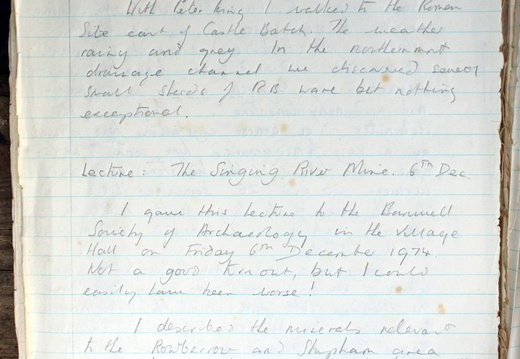 With Peter King I walked to the Roman
Site east of Castle Batch. The weather
rainy and grey. In the northernmost
drainage channel we discovered several
small sherds of R.B ware but nothing
exceptional.
Lecture: The Singing River Mine. 6th Dec.
I gave this lecture to the Banwell
Society of Archaeology in the Village
Hall on Friday 6th December 1974.
Not a good turnout, but I could
easily have been worse!
I described the minerals relevant
to the Rowberrow and Shipham area